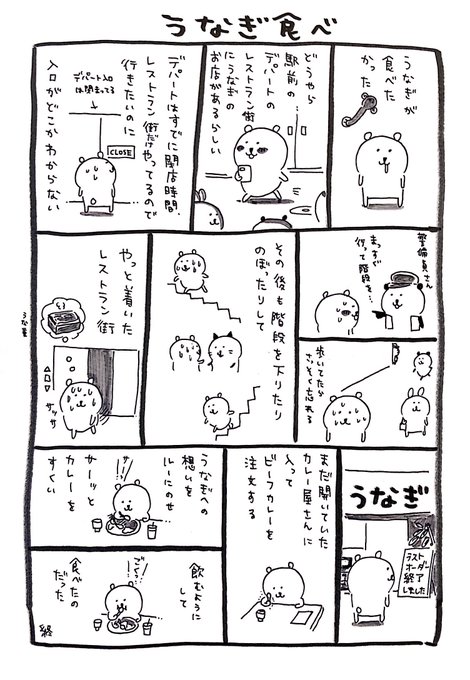 うなぎ食べ
うなぎが
食べた
かった
どうやら
駅前の
デパートの
レストラン街
にうなぎの
お店があるらしい
デパートはすでに閉店時間
レストラン街だけやってるので
行きたいのに
デパート入口
は閉まってる
CLOSE
入口がどこかわからない
警備員さん
まっすぐ
行って階段を…
歩いてたら
さっそく忘れる
その後も階段を下りたり
のぼったりして
やっと着いた
レストラン街
サッサ
うな重
うなぎ
ラスト
オーダー
終了
しました
まだ開いていた
カレー屋さんに
入って
ビーフカレーを
注文する
うなぎへの
想いを
ルーにのせ
サーッと
カレーを
すくい
サーッ
飲むように
して
食べたの
だった
ごくっ
終